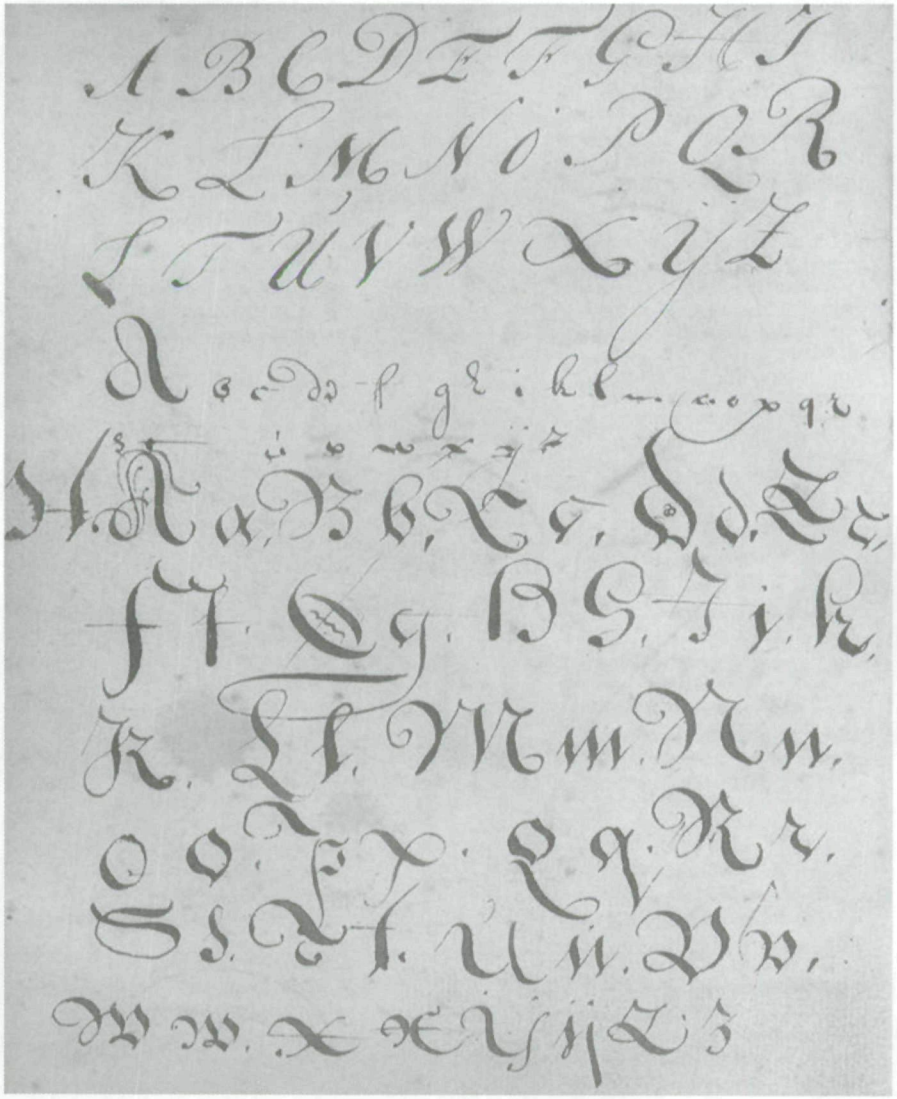 A B C D E F G H I
K L M N O P Q R
S T U V W X ÿ Z
A b c d d e f g h i k l m n o p q r
s t ü v w x ÿ z
A a. B b. C c. D d. E e.
F f. G g. H h. I i. k.
K. L l. M m. N n.
O o. P p. Q q. R r.
S s. T t. U ü. V v.
W w. X x Ÿ ÿ Z z